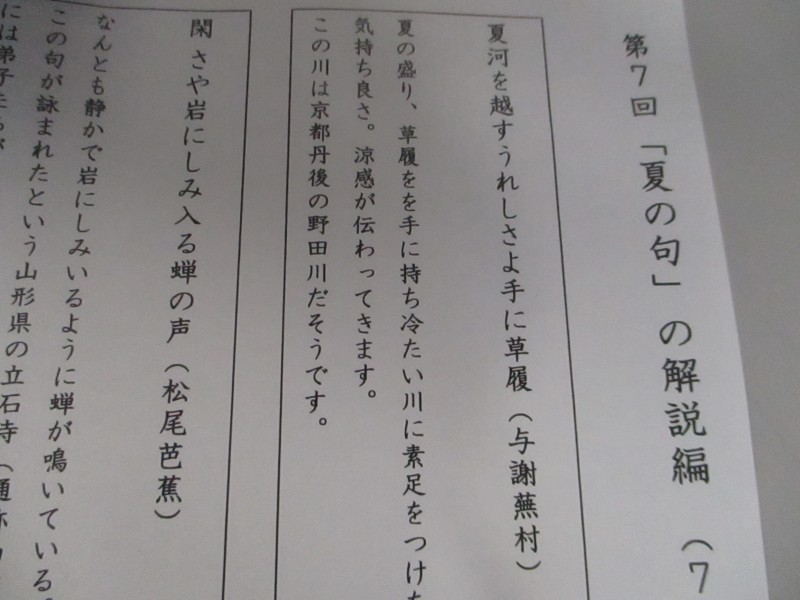 第7回 「夏の句」の解説編 (7
夏河を越すうれしさよ手に草履（与謝蕪村）
夏の盛り、草履をを手に持ち冷たい川に素足をつけた
気持ち良さ。涼感が伝わってきます。
この川は京都丹後の野田川だそうです。
閑さや岩にしみ入る蝉の声（松尾芭蕉）
なんとも静かで岩にしみいるように蝉が鳴いている。
この句が詠まれたという山形県の立石寺（通称
には弟子